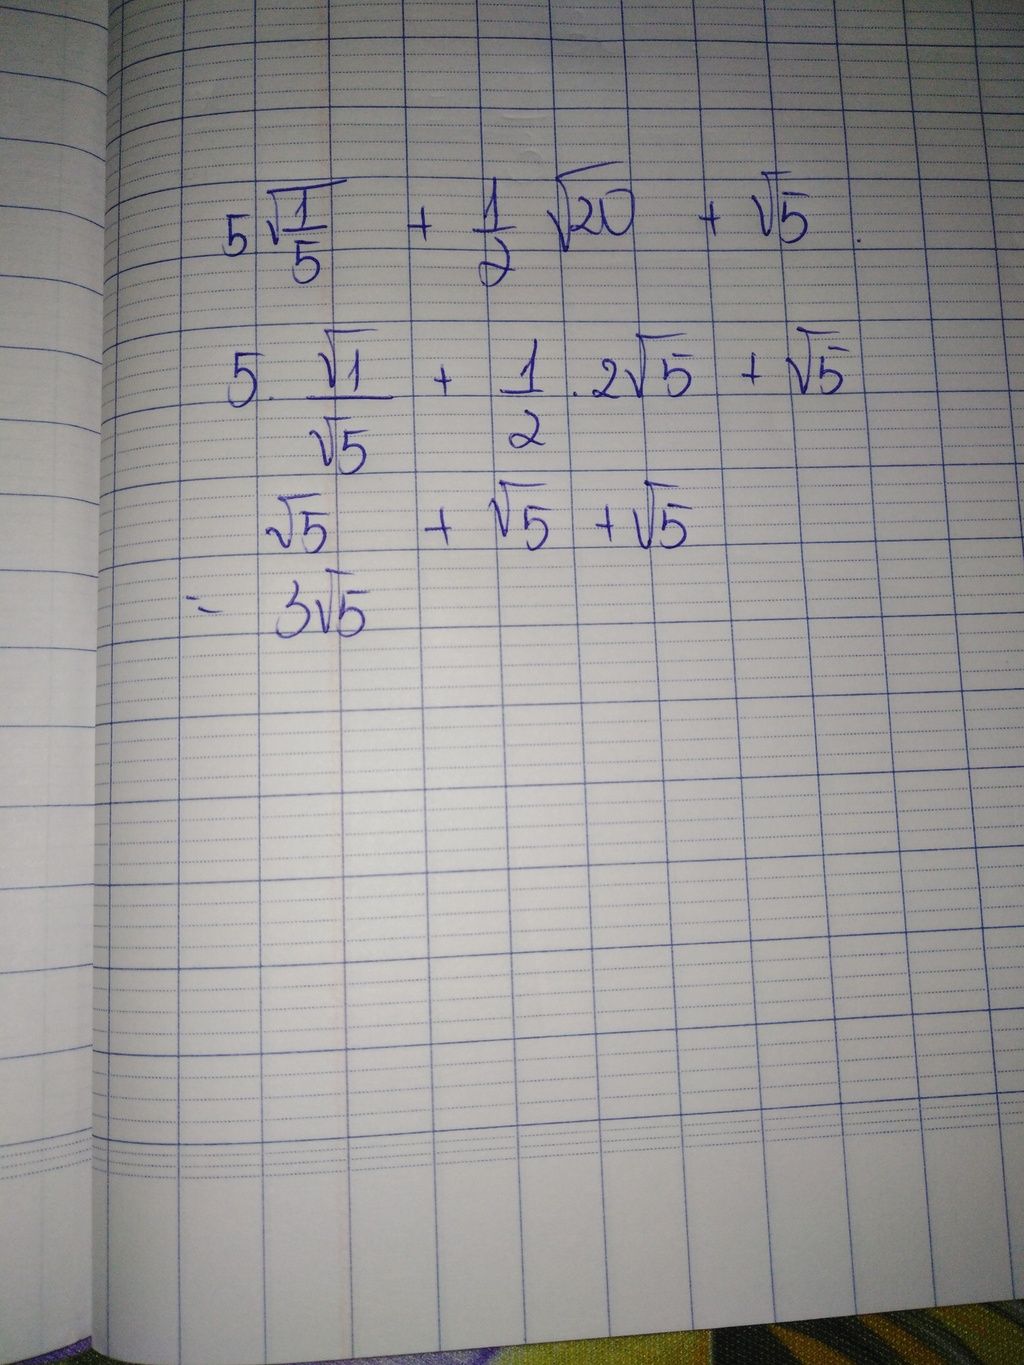 5√(1/5) + 1/2 √20 + √5.
5. √1/√5 + 1/2 . 2√5 + √5
√5 + √5 + √5
= 3√5